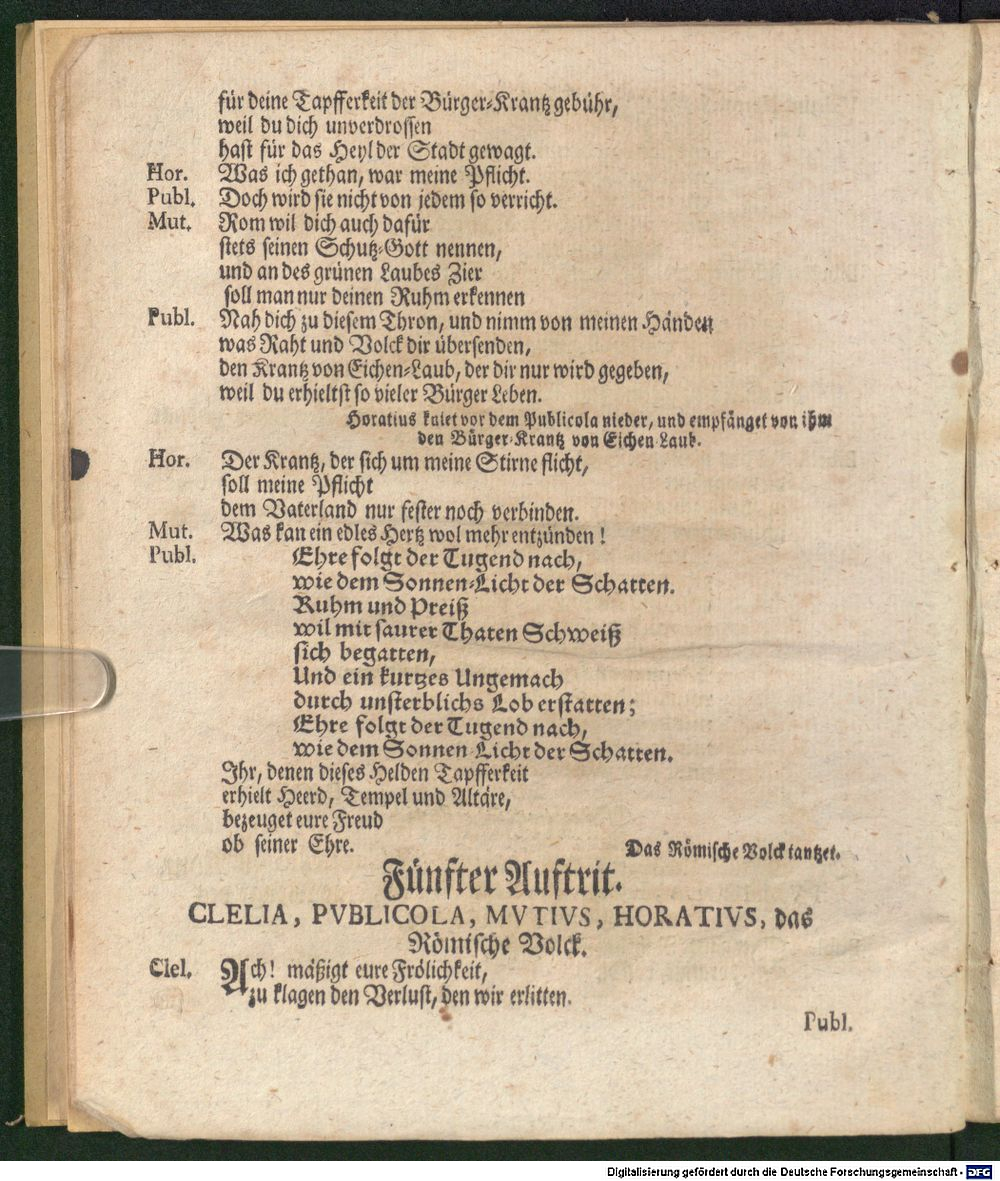 für deine Tapfferkeit der Bürger-Krantz gebühr,
weil du dich unverdrossen
hast für das Heyl der Stadt gewagt.
Hor. Was ich gethan, war meine Pflicht.
Publ. Doch wird sie nicht von jedem so verricht.
Mut. Rom wil dich auch dafür
stets seinen Schutz-Gott nennen,
und an des grünen Laubes Zier
soll man nur deinen Ruhm erkennen
Publ. Nah dich zu diesem Thron, und nimm von meinen Händen
was Raht und Volck dir übersenden,
den Krantz von Eichen-Laub, der dir nur wird gegeben,
weil du erhieltst so vieler Bürger Leben.
Horatius kniet vor dem Publicola nieder, und empfänget von ihm
den Bürger-Krantz von Eichen Laub.
Hor. Der Krantz, der sich um meine Stirne flicht,
soll meine Pflicht
dem Vaterland nur fester noch verbinden.
Mut. Was kan ein edles Hertz wol mehr entzünden!
Publ. Ehre folgt der Tugend nach,
wie dem Sonnen-Licht der Schatten.
Ruhm und Preiß
wil mit saurer Thaten Schweiß
sich begatten,
Und ein kurtzes Ungemach
durch unsterblichs Lob erstatten;
Ehre folgt der Tugend nach,
wie dem Sonnen Licht der Schatten.
Ihr, denen dieses Helden Tapfferkeit
erhielt Heerd, Tempel und Altäre,
bezeuget eure Freud
ob seiner Ehre. Das Römische Volck tantzet.
Fünfter Auftrit.
CLELIA, PVBLICOLA, MVTIVS, HORATIVS, das
Römische Volck.
Clel. Ach! mäßigt eure Frölichkeit,
zu klagen den Verlust, den wir erlitten.
Publ.
Digitalisierung gefördert durch die Deutsche Forschungsgemeinschaft - DFG